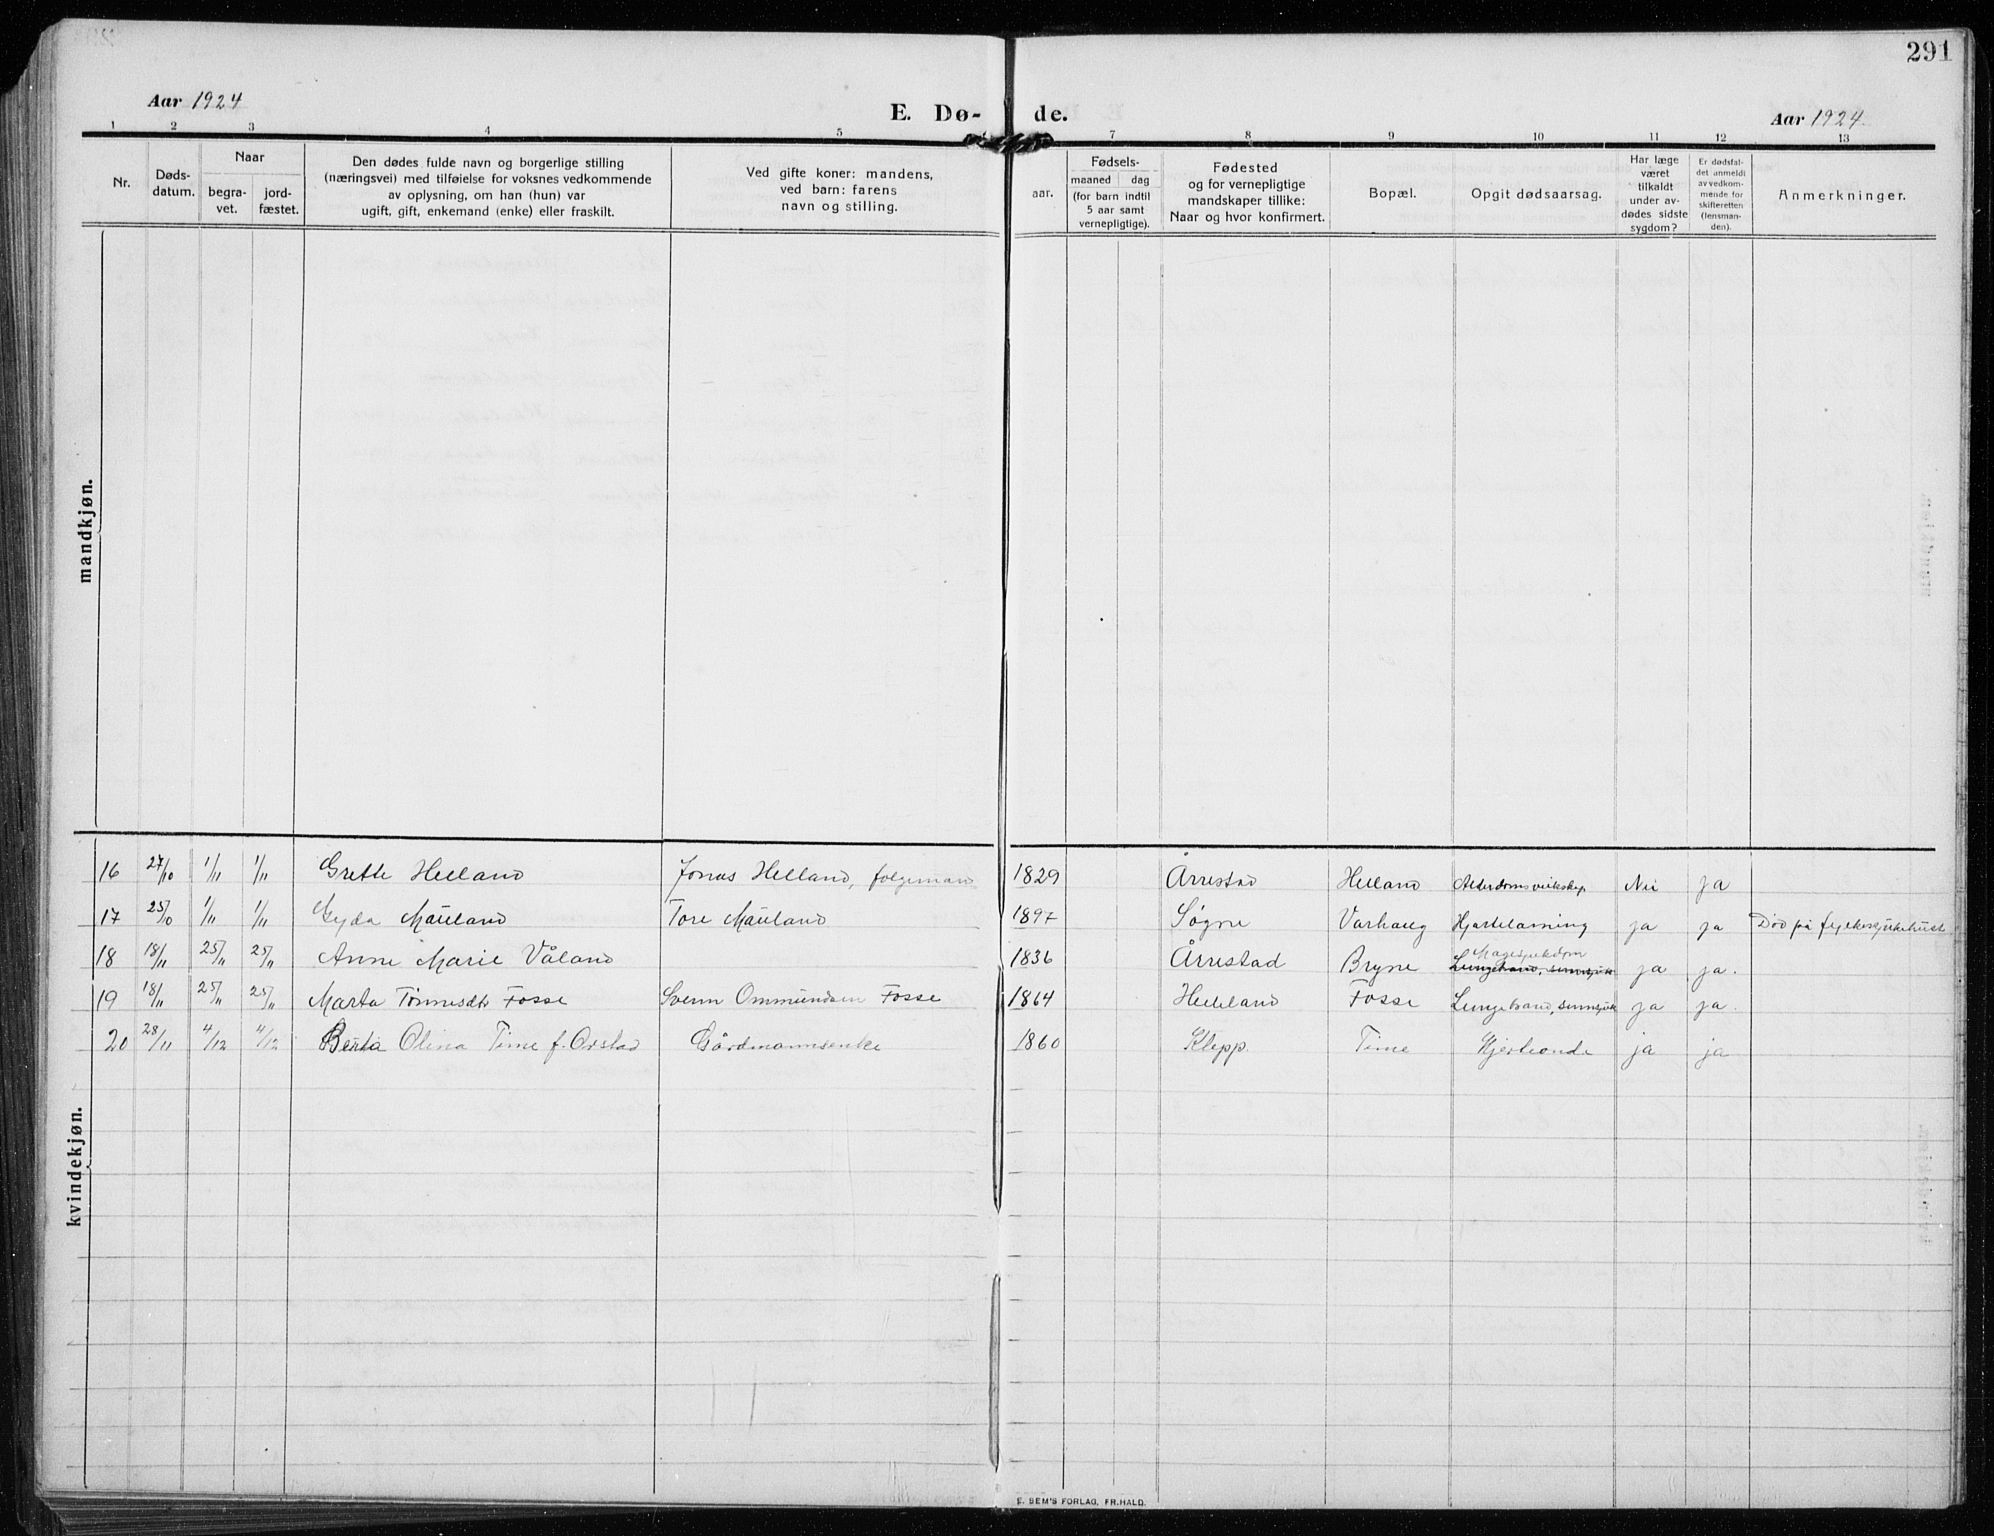 291
Aar 1924
E. Dø-
de.
Aar 1924.
1 2 3 4 5 7 8 9 10 11 12 13
Nr.
Døds-
datum.
Naar
begra-
vet.
jord-
fæstet.
Den dødes fulde navn og borgerlige stilling
(næringsvei) med tilføielse for voksnes vedkommende
av oplysning, om han (hun) var
ugift, gift, enkemand (enke) eller fraskilt.
Ved gifte koner: mandens,
ved barn: farens
navn og stilling.
aar.
Fødsels-
maaned dag
(for barn indtil
5 aar samt
vernepligtige).
Fødested
og for vernepligtige
mandskaper tillike:
Naar og hvor konfirmert.
Bopæl.
Opgit dødsaarsag.
Har læge
været
tilkaldt
under av-
dødes sidste
sygdom?
Er dødsfal-
det anmeldt
av vedkom-
mende for
skifteretten
(lensman-
den).
Anmerkninger.
mandkjøn.
16 27/10 1/11 1/11 Grette Helland Jonas Helland, folgemann 1829 Årrestad Helland Alderdomsveikskap Nei ja
17 25/10 1/11 1/11 Gyda Mauland Tore Mauland 1897 Søgne Varhaug Hjartelaming ja ja Död på fylkessjukehuset
18 18/11 25/11 25/11 Anne Marie Våland 1836 Årrestad Bryne Magesjukdom ja ja.
Lungebrand, sinnsjuk
19 18/11 25/11 25/11 Marta Tønnesdtr Fosse Svenn Ommundsen Fosse 1864 Helland Fosse Lungebrand, sinnsjuk ja ja.
20 28/11 4/12 4/12 Berta Olina Time f. Orstad Gårdmannsenke 1860 Klepp. Time Hjerteonde ja ja
kvindekjøn.
E. SEM'S FORLAG, FR.HALD.